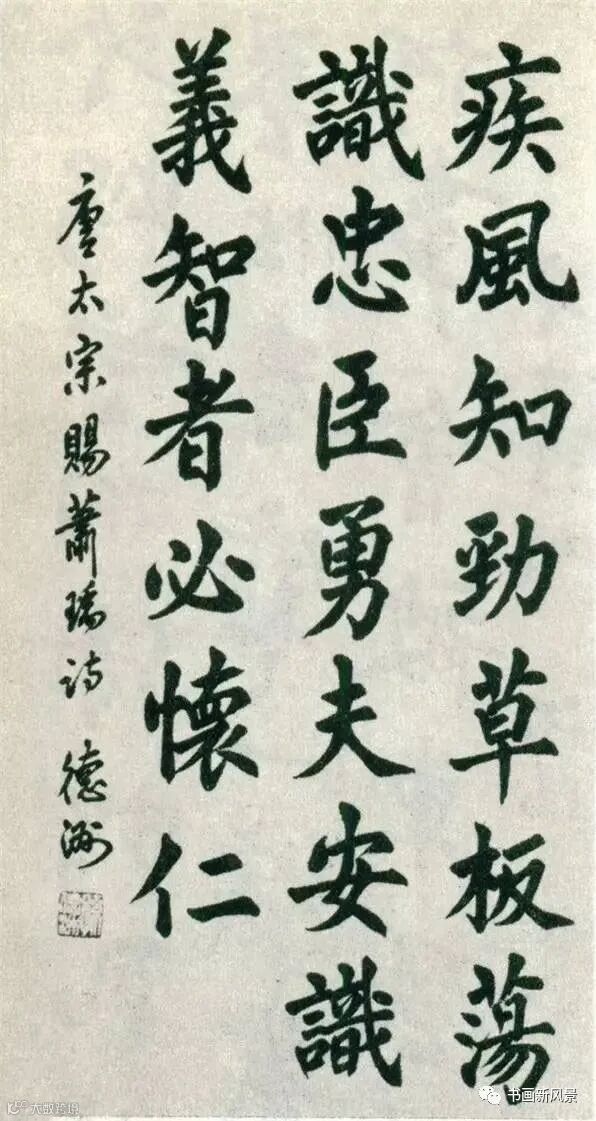 疾風知勁草板蕩
識忠臣勇夫安識
義智者必懷仁
唐太宗賜蕭瑀诗 德洲
书画新风景
大数跨境